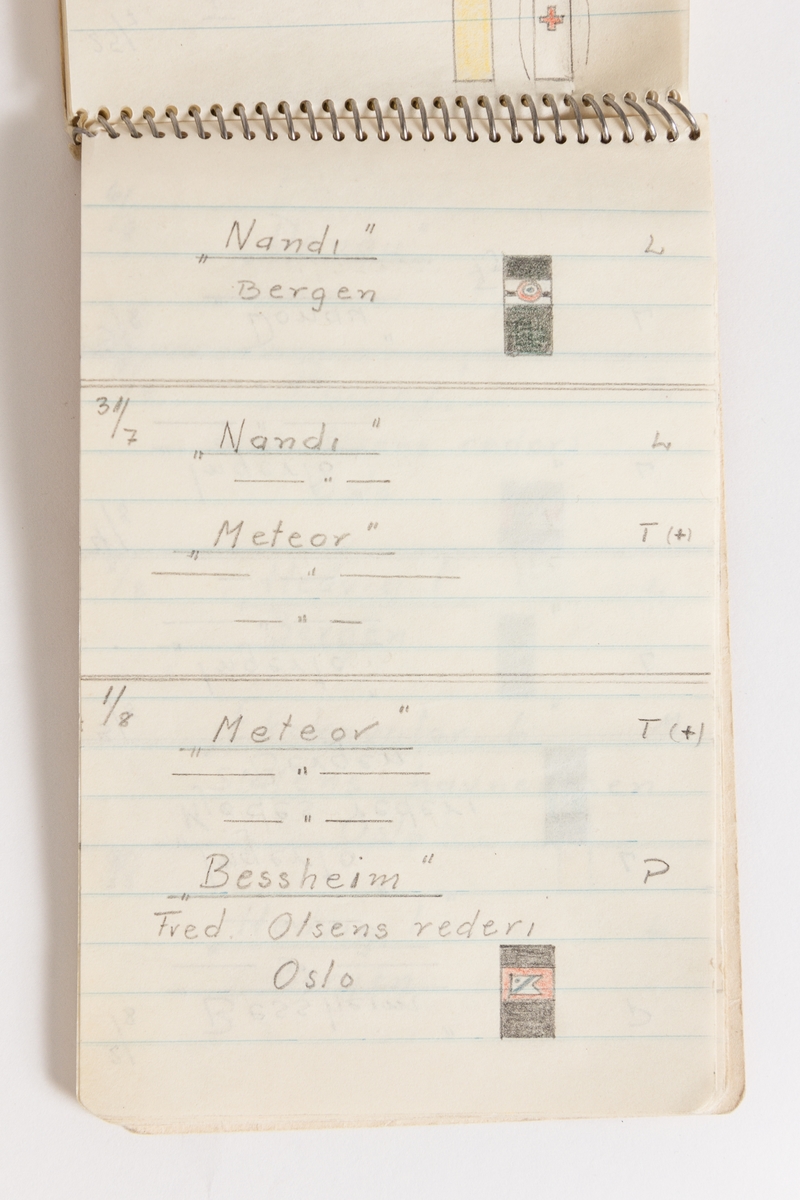 „Nandi" L
Bergen
31/7
„Nandi" L
— " —
„Meteor" T (+)
— " —
— " —
1/8
„Meteor" T (+)
— " —
— " —
„Bessheim" P
Fred. Olsens rederi
Oslo